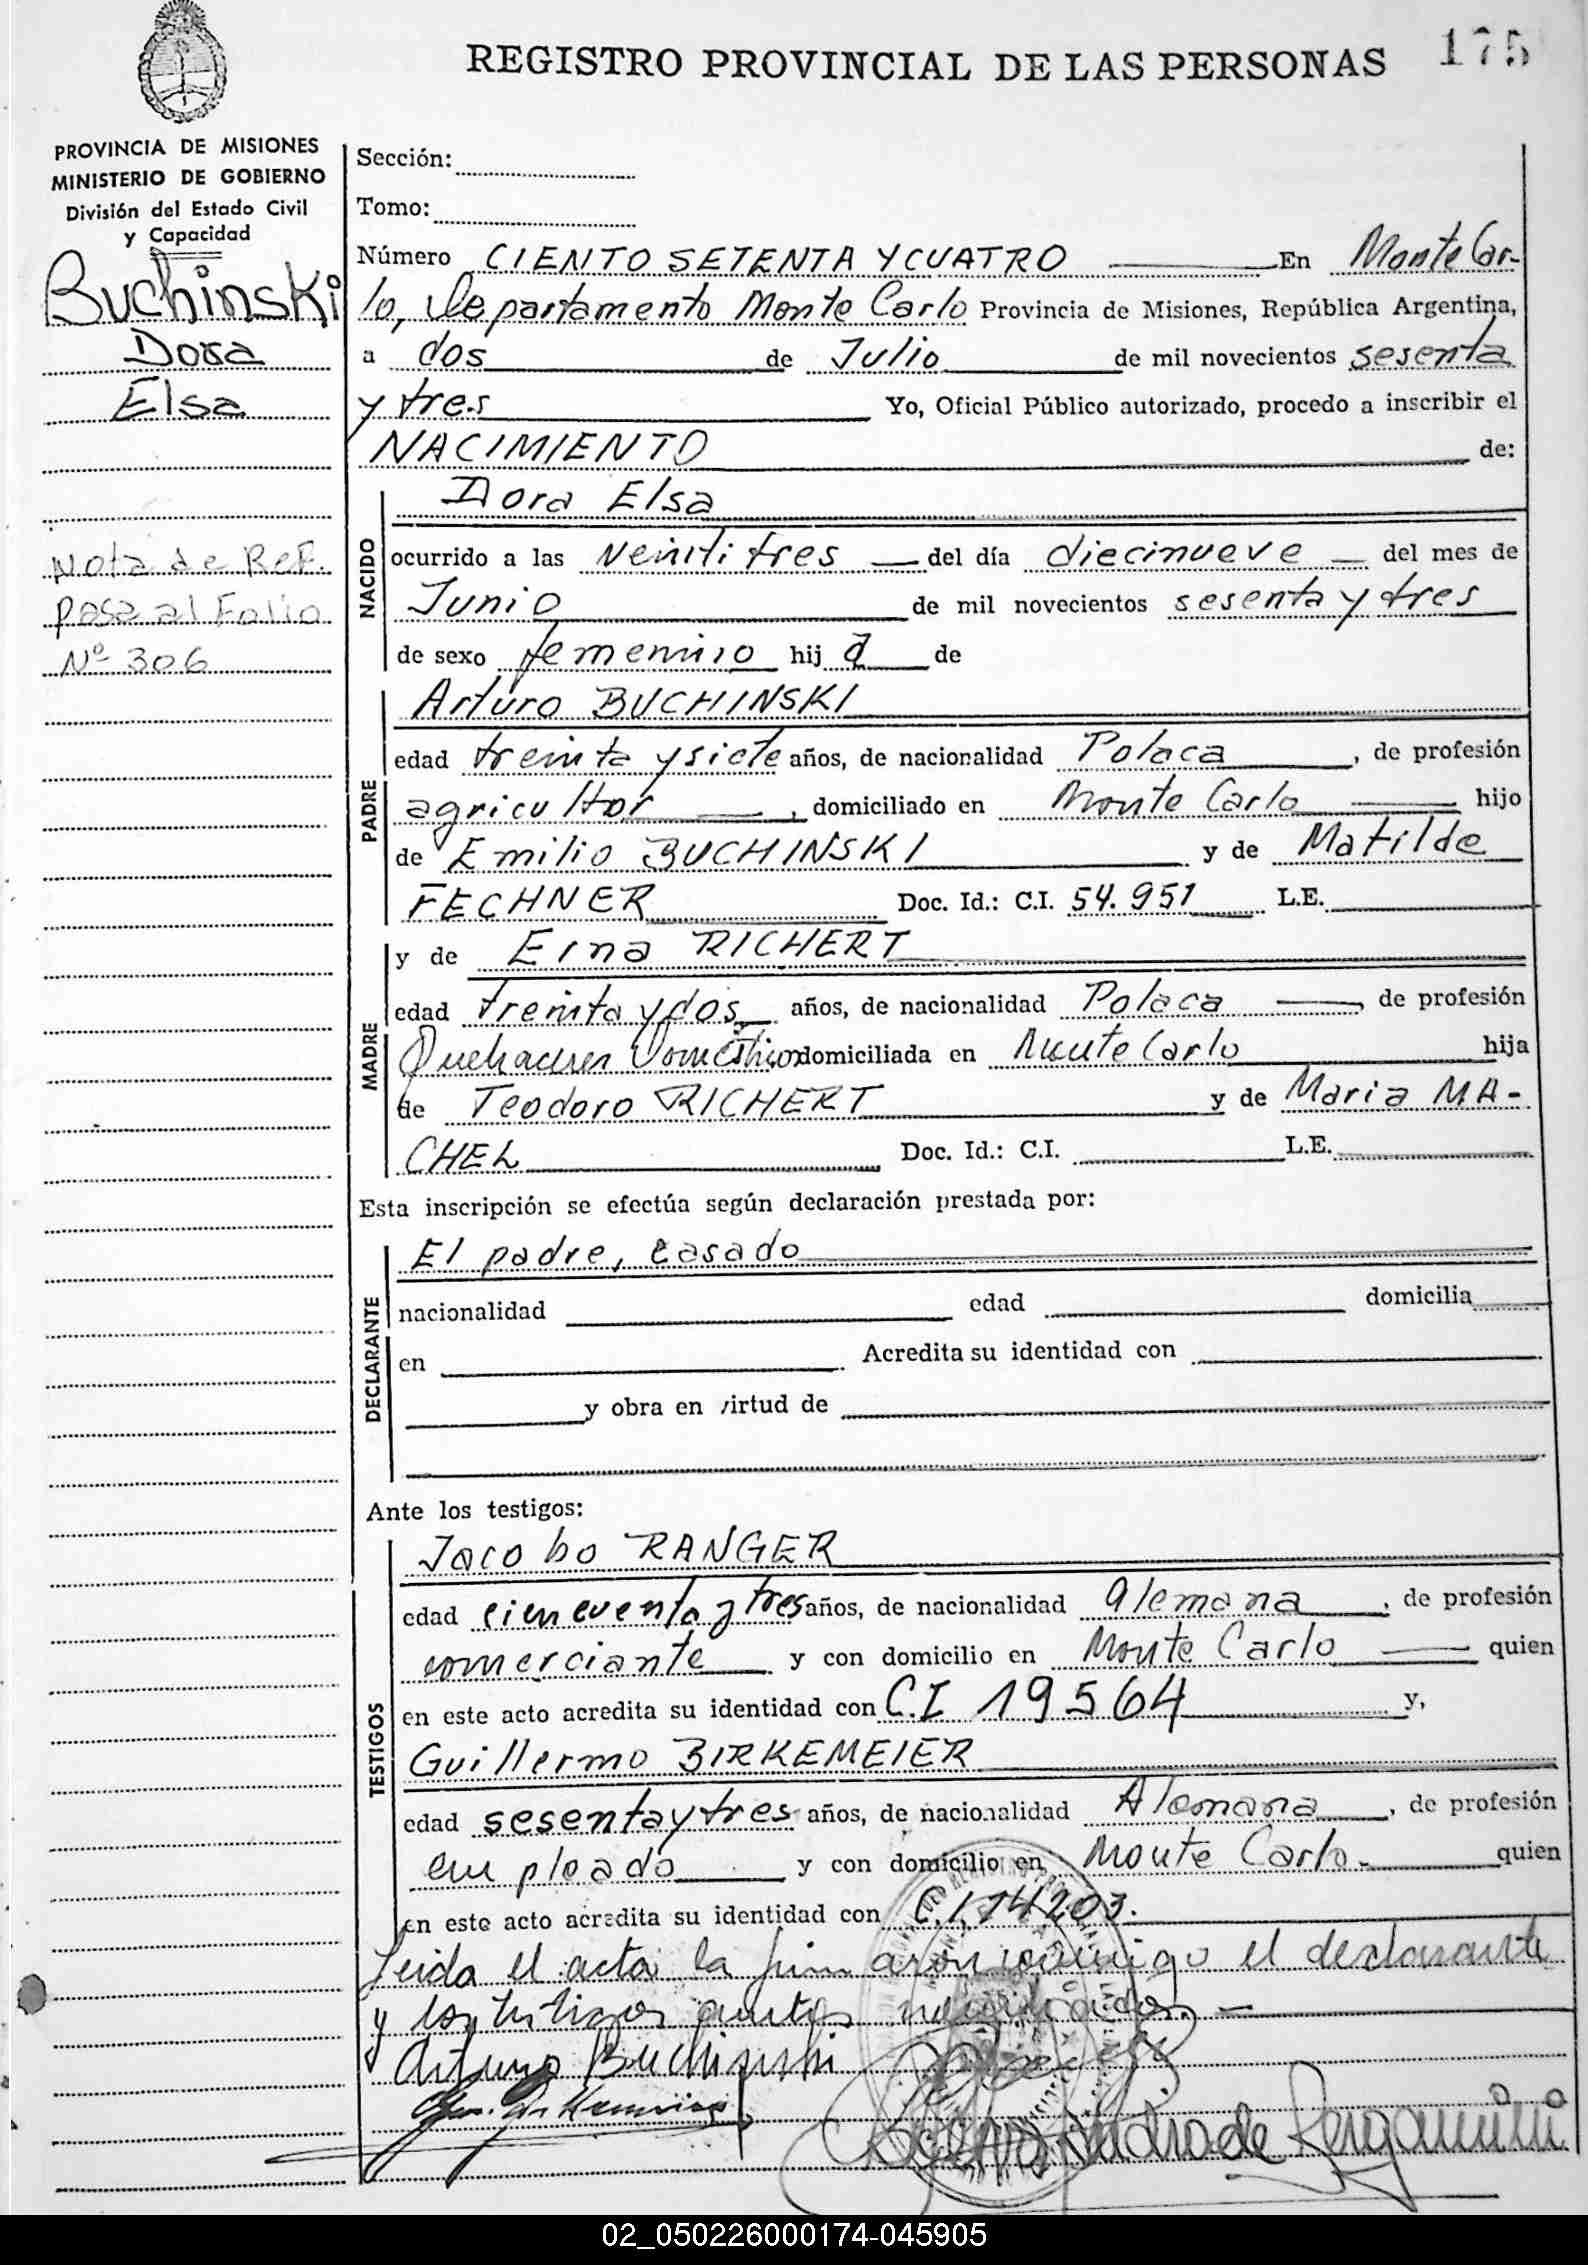 REGISTRO PROVINCIAL DE LAS PERSONAS 175
PROVINCIA DE MISIONES
MINISTERIO DE GOBIERNO
División del Estado Civil
y Capacidad
Buchinski
Dora
Elsa
Nota de Ref.
Pasa al Folio
Nº 306
Sección:
Tomo:
Número CIENTO SETENTA Y CUATRO En Monte Car-
lo, Departamento Monte Carlo Provincia de Misiones, República Argentina,
a dos de Julio de mil novecientos sesenta
y tres Yo, Oficial Público autorizado, procedo a inscribir el
NACIMIENTO de:
NACIDO
Dora Elsa
ocurrido a las veintitres del día diecinueve del mes de
Junio de mil novecientos sesenta y tres
de sexo femenino hij a de
PADRE
Arturo BUCHINSKI
edad treinta y siete años, de nacionalidad Polaca, de profesión
agricultor, domiciliado en Monte Carlo hijo
de Emilio BUCHINSKI y de Matilde
FECHNER Doc. Id.: C.I. 54.951 L.E.
MADRE
y de Erna RICHERT
edad treinta y dos años, de nacionalidad Polaca, de profesión
Quehaceres Domésticos domiciliada en Monte Carlo hija
de Teodoro RICHERT y de Maria MA-
CHEL Doc. Id.: C.I. L.E.
Esta inscripción se efectúa según declaración prestada por:
DECLARANTE
El padre, casado
nacionalidad edad domicilia
en Acredita su identidad con
y obra en virtud de
Ante los testigos:
TESTIGOS
Jacobo RANGER
edad cincuenta y tres años, de nacionalidad alemana, de profesión
comerciante y con domicilio en Monte Carlo quien
en este acto acredita su identidad con C.I 19564 y,
Guillermo BIRKEMEIER
edad sesenta y tres años, de nacionalidad Alemana, de profesión
empleado y con domicilio en Monte Carlo.- quien
en este acto acredita su identidad con C.I. 14203.
Leida el acta la firmaron conmigo el declarante
y los testigos antes nombrados.-
Arturo Buchinski
de Bergamini
02_050226000174-045905